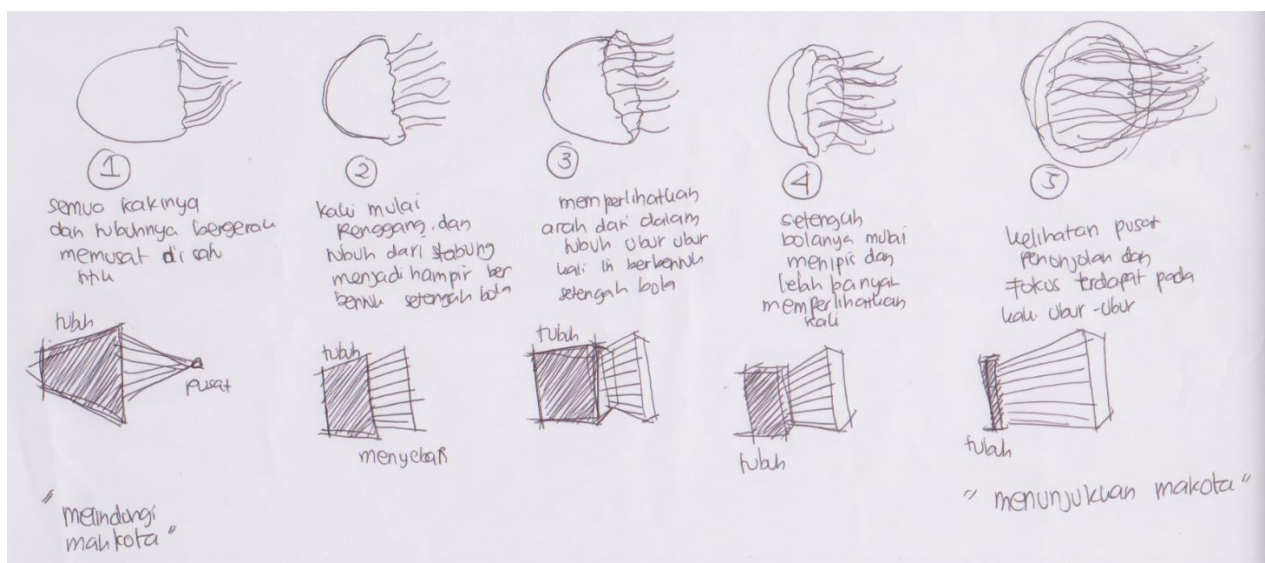 1
semua kakinya
dan tubuhnya bergerak
memusat di satu
titik
tubuh
pusat
"melindungi
mahkota"
2
kaki mulai
Renggang, dan
tubuh dari tabung
menjadi hampir ber
bentuk setengah bola
tubuh
menyebar
3
memperlihatkan
arah dari dalam
tubuh ubur ubur
kali ini berbentuk
setengah bola
tubuh
4
setengah
bolanya mulai
menipis dan
lebih banyak
memperlihatkan
kaki
tubuh
5
kelihatan pusat
penonjolan dan
fokus terdapat pada
kaki ubur-ubur
tubuh
"menunjukkan makota"